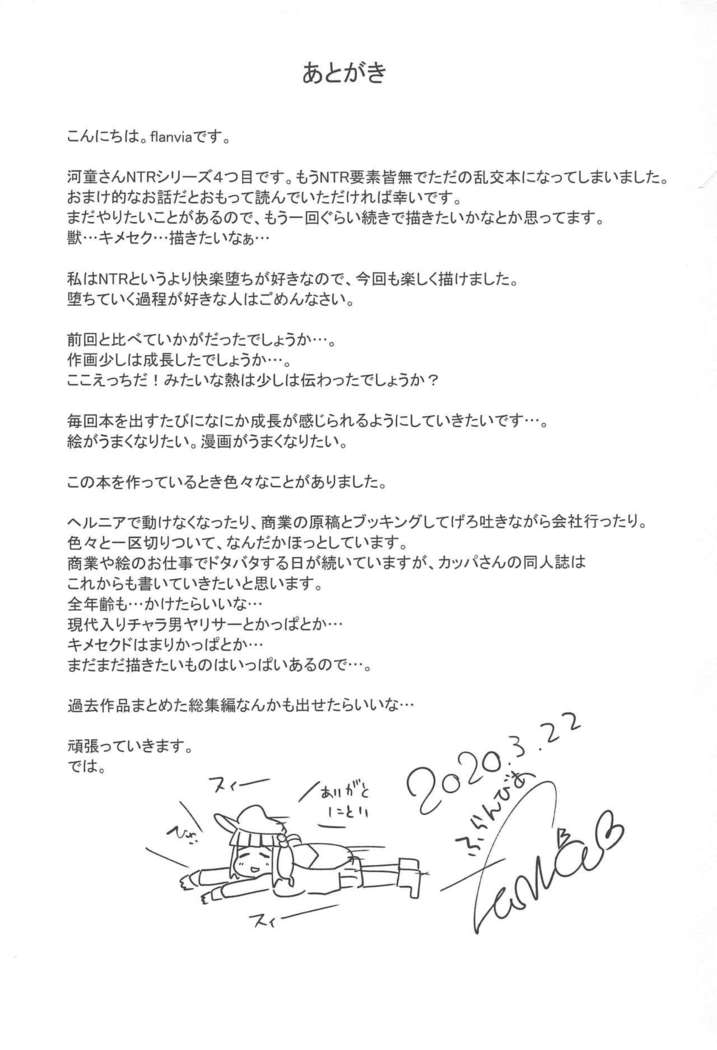 あとがき
こんにちは。flanviaです。
河童さんNTRシリーズ４つ目です。もうNTR要素皆無でただの乱交本になってしまいました。
おまけ的なお話だとおもって読んでいただければ幸いです。
まだやりたいことがあるので、もう一回ぐらい続きで描きたいかなとか思ってます。
獣…キメセク…描きたいなぁ…
私はNTRというより快楽堕ちが好きなので、今回も楽しく描けました。
堕ちていく過程が好きな人はごめんなさい。
前回と比べていかがだったでしょうか…。
作画少しは成長したでしょうか…。
ここえっちだ！みたいな熱は少しは伝わったでしょうか？
毎回本を出すたびになにか成長が感じられるようにしていきたいです…。
絵がうまくなりたい。漫画がうまくなりたい。
この本を作っているとき色々なことがありました。
ヘルニアで動けなくなったり、商業の原稿とブッキングしてげろ吐きながら会社行ったり。
色々と一区切りついて、なんだかほっとしています。
商業や絵のお仕事でドタバタする日が続いていますが、カッパさんの同人誌は
これからも書いていきたいと思います。
全年齢も…かけたらいいな…
現代入りチャラ男ヤリサーとかっぱとか…
キメセクドはまりかっぱとか…
まだまだ描きたいものはいっぱいあるので…。
過去作品まとめた総集編なんかも出せたらいいな…
頑張っていきます。
では。
スィー
ありがと
にとり
スィー
2020.3.22
ふらんびあ